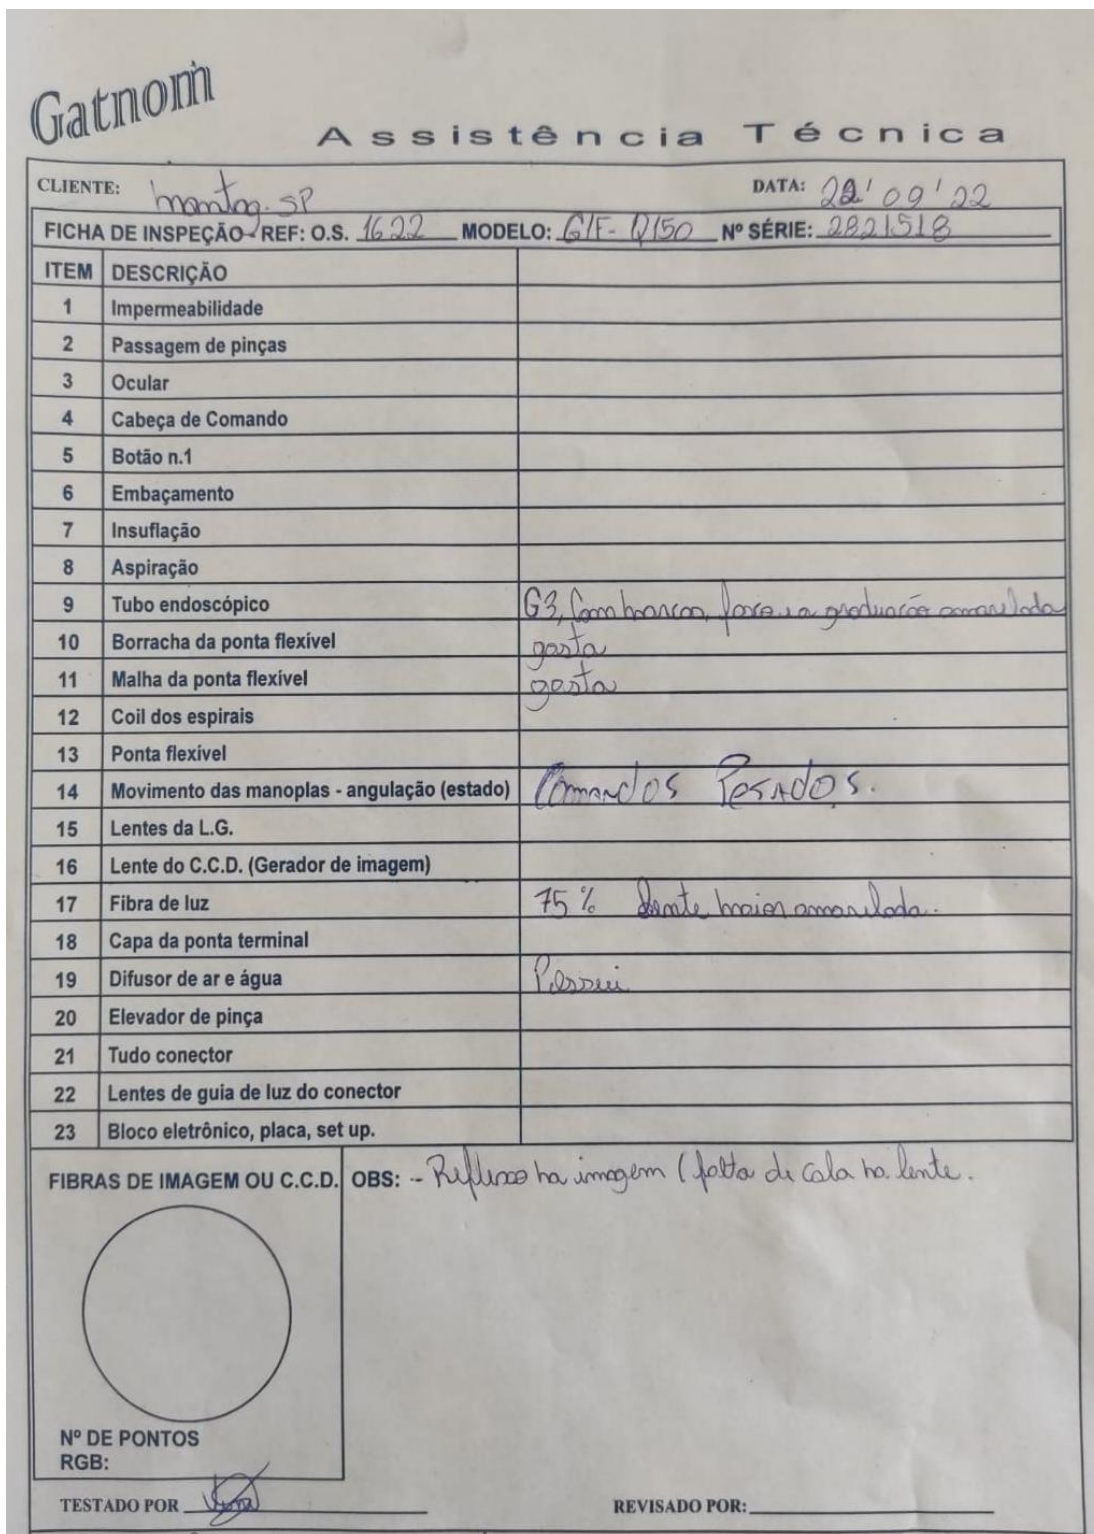 Gatnom
Assistência Técnica
CLIENTE: montag. SP DATA: 22/09/22
FICHA DE INSPEÇÃO - REF: O.S. 1622 MODELO: GIF-Q150 Nº SÉRIE: 2821518
ITEM DESCRIÇÃO
1 Impermeabilidade
2 Passagem de pinças
3 Ocular
4 Cabeça de Comando
5 Botão n.1
6 Embaçamento
7 Insuflação
8 Aspiração
9 Tubo endoscópico G3, Com marcas, graduação amarelada
10 Borracha da ponta flexível gasta
11 Malha da ponta flexível gasta
12 Coil dos espirais
13 Ponta flexível
14 Movimento das manoplas - angulação (estado) Comandos Pesados.
15 Lentes da L.G.
16 Lente do C.C.D. (Gerador de imagem)
17 Fibra de luz 75% Lente maior amarelada.
18 Capa da ponta terminal
19 Difusor de ar e água Possui
20 Elevador de pinça
21 Tudo conector
22 Lentes de guia de luz do conector
23 Bloco eletrônico, placa, set up.
FIBRAS DE IMAGEM OU C.C.D. OBS: - Reflexo na imagem (falta de cola na lente.
Nº DE PONTOS
RGB:
TESTADO POR REVISADO POR: